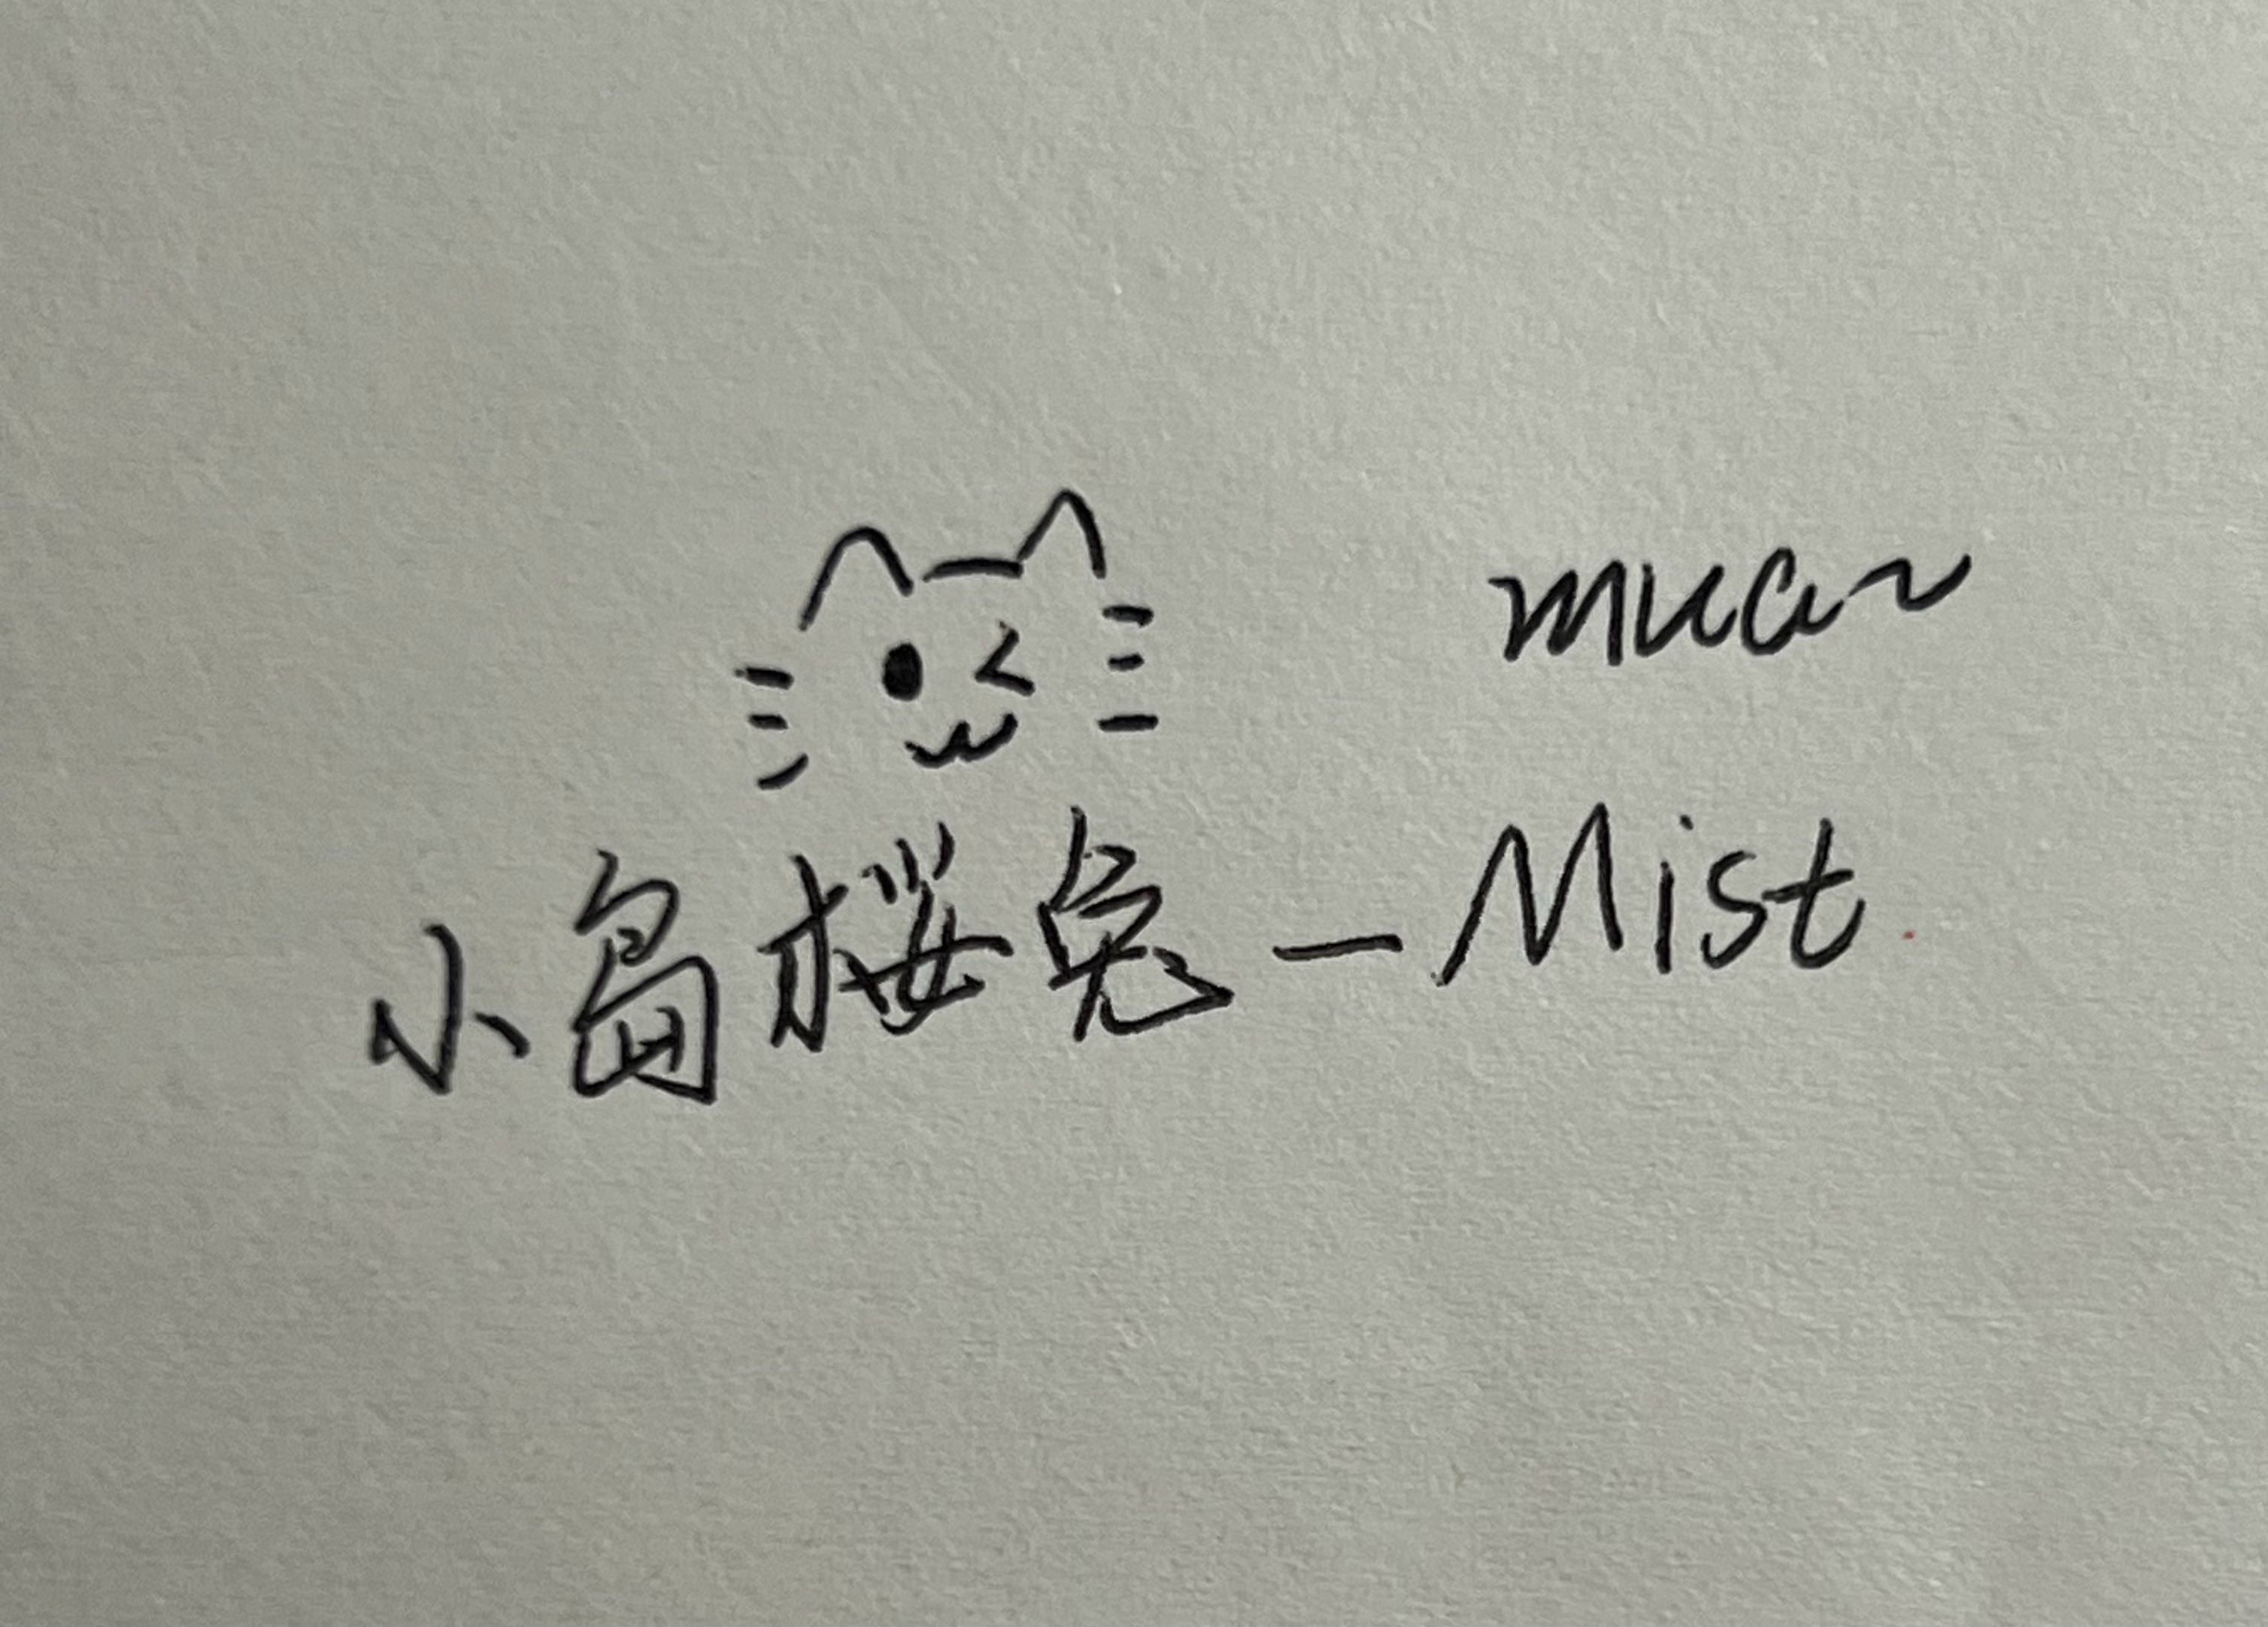 mua~
小岛桜兔-Mist